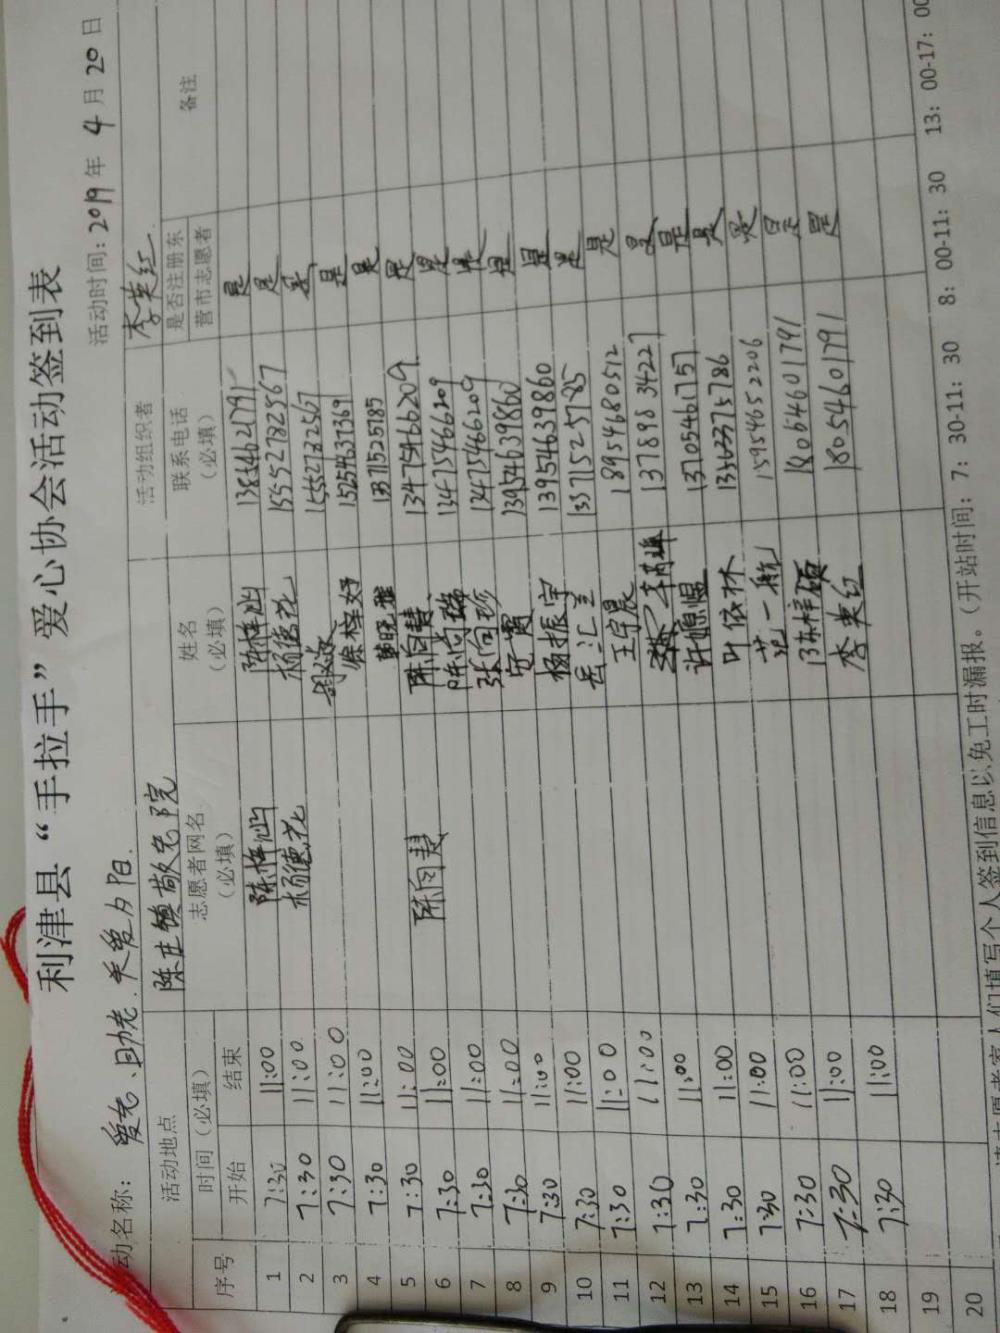 利津县“手拉手”爱心协会活动签到表
动名称： 爱老、助老、关爱夕阳. 活动时间：2019年 4月 20日
活动地点 陈庄镇敬老院 活动组织者 李英红
序号 时间（必填） 志愿者网名（必填） 姓名（必填） 联系电话（必填） 是否注册东营市志愿者 备注
开始 结束
1 7:30 11:00 陈梓灿 陈梓灿 是
2 7:30 11:00 杨德花 杨德花 15552732567 是
3 7:30 11:00 15552732567 是
4 7:30 11:00 徐梓妤 15254637369 是
5 7:30 11:00 晓雅 13371525785 是
6 7:30 11:00 陈向慧 陈向慧 13475466209 是
7 7:30 11:00 陈尚瑞 13475466209 是
8 7:30 11:00 张向珍 13475466209 是
9 7:30 11:00 13954639860 是
10 7:30 11:00 杨振宇 13954639860 是
11 7:30 11:00 岳汇兰 13371525785 是
12 7:30 11:00 王宇晨 18954680512 是
13 7:30 11:00 13789834227 是
14 7:30 11:00 许 是
15 7:30 11:00 叶依林 是
16 7:30 11:00 范一航 15954652206 是
17 7:30 11:00 陈梓硕 18054601791 是
18 7:30 11:00 李英红 18054601791 是
19
20
人们填写个人签到信息以免工时漏报。（开站时间：7：30-11：30 8：00-11：30 13：00-17：00